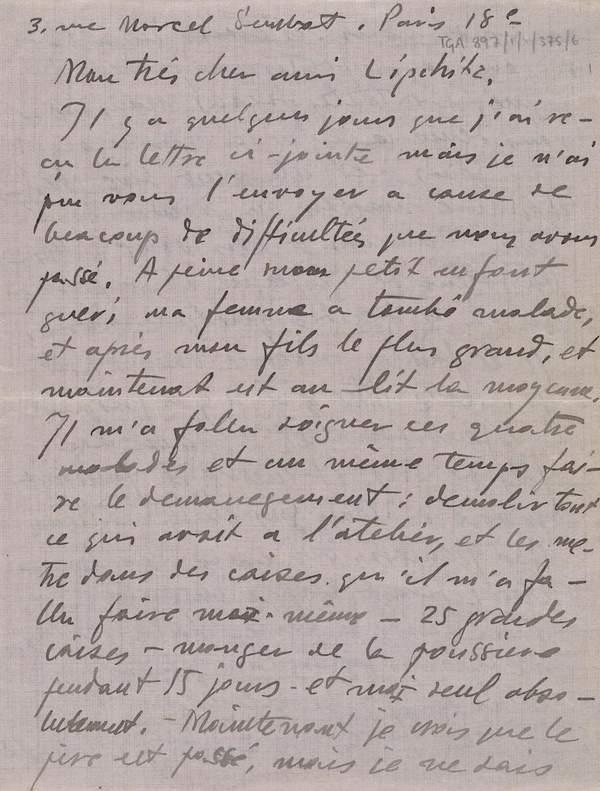 3. rue Marcel Sembat. Paris 18e
TGA 897/1/1/375/6
Mon trés cher ami Lipchitz,
Il y a quelques jours que j'ai re-
çu la lettre ci-jointe mais je n'ai
pu vous l'envoyer a cause de
beaucoup de difficultés que nous avons
passé. A peine mon petit enfant
gueri, ma femme a tombé malade,
et aprés mon fils le plus grand, et
maintenat est au lit la moyenne.
Il m'a fallu soigner ces quatre
malades et au même temps fai-
re le demanegement: demolir tout
ce qui avait a l'atelier, et les me-
tre dans des caises qu'il m'a fa-
llu faire moi-même - 25 grandes
caises - manger de la poussiere
pendant 15 jours - et moi seul abso-
lutement. - Maintenant je crois que le
pire est passé, mais je ne sais